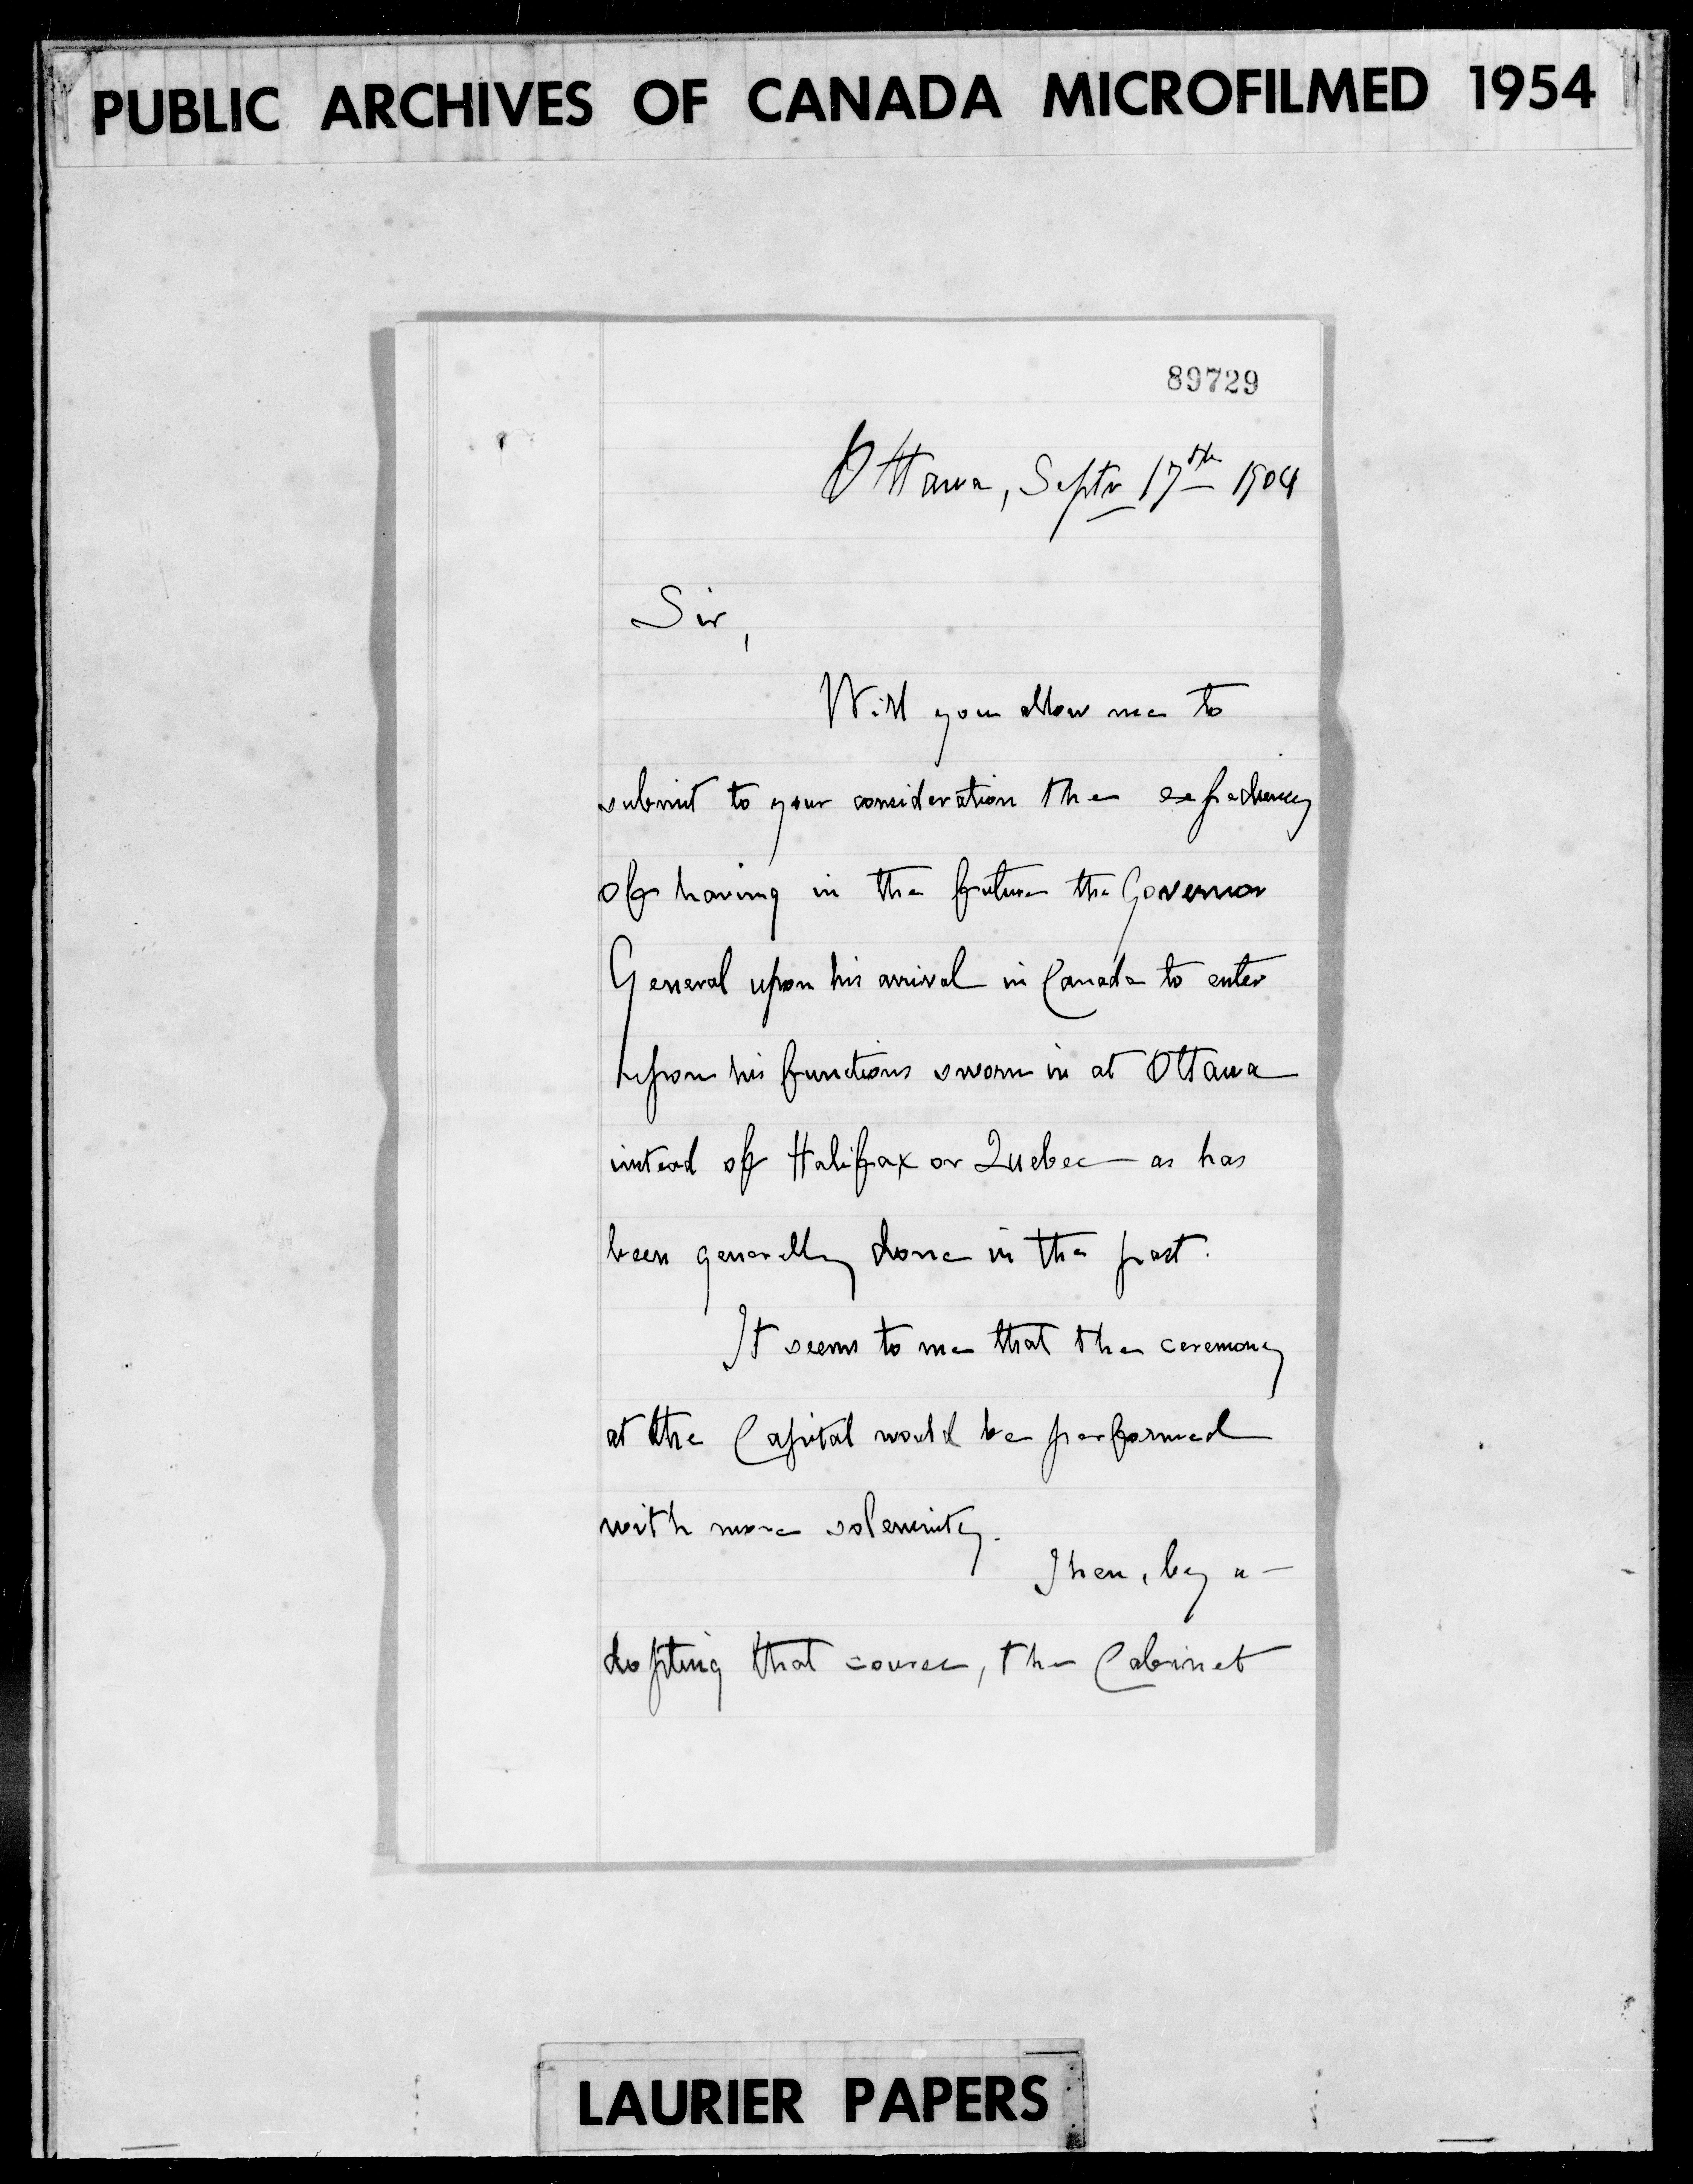 PUBLIC ARCHIVES OF CANADA MICROFILMED 1954
89729
Ottawa, Septr 17th 1904
Sir,
Will you allow me to
submit to your consideration the expediency
of having in the future the Governor
General upon his arrival in Canada to enter
upon his functions sworn in at Ottawa
instead of Halifax or Quebec as has
been generally done in the past.
It seems to me that the ceremony
at the Capital would be performed
with more solemnity.
Then, by a-
dopting that course, the Cabinet
LAURIER PAPERS